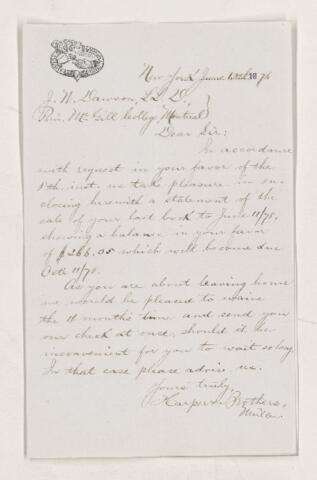 New York June 12th 1878
J. W. Dawson, LL D.,
Prin. McGill College Montreal
Dear Sir:
In accordance
with request in your favor of the
8th. inst. we take pleasure in en-
closing herewith a statement of the
sale of your last book to June 11/78,
showing a balance in your favor
of $266.05 which will become due
Oct. 11/78.
As you are about leaving home
we would be pleased to waive
the 4 month's time and send you
our check at once, should it be
inconvenient for you to wait so long.
In that case please advise us.
Yours truly,
Harper & Brothers,